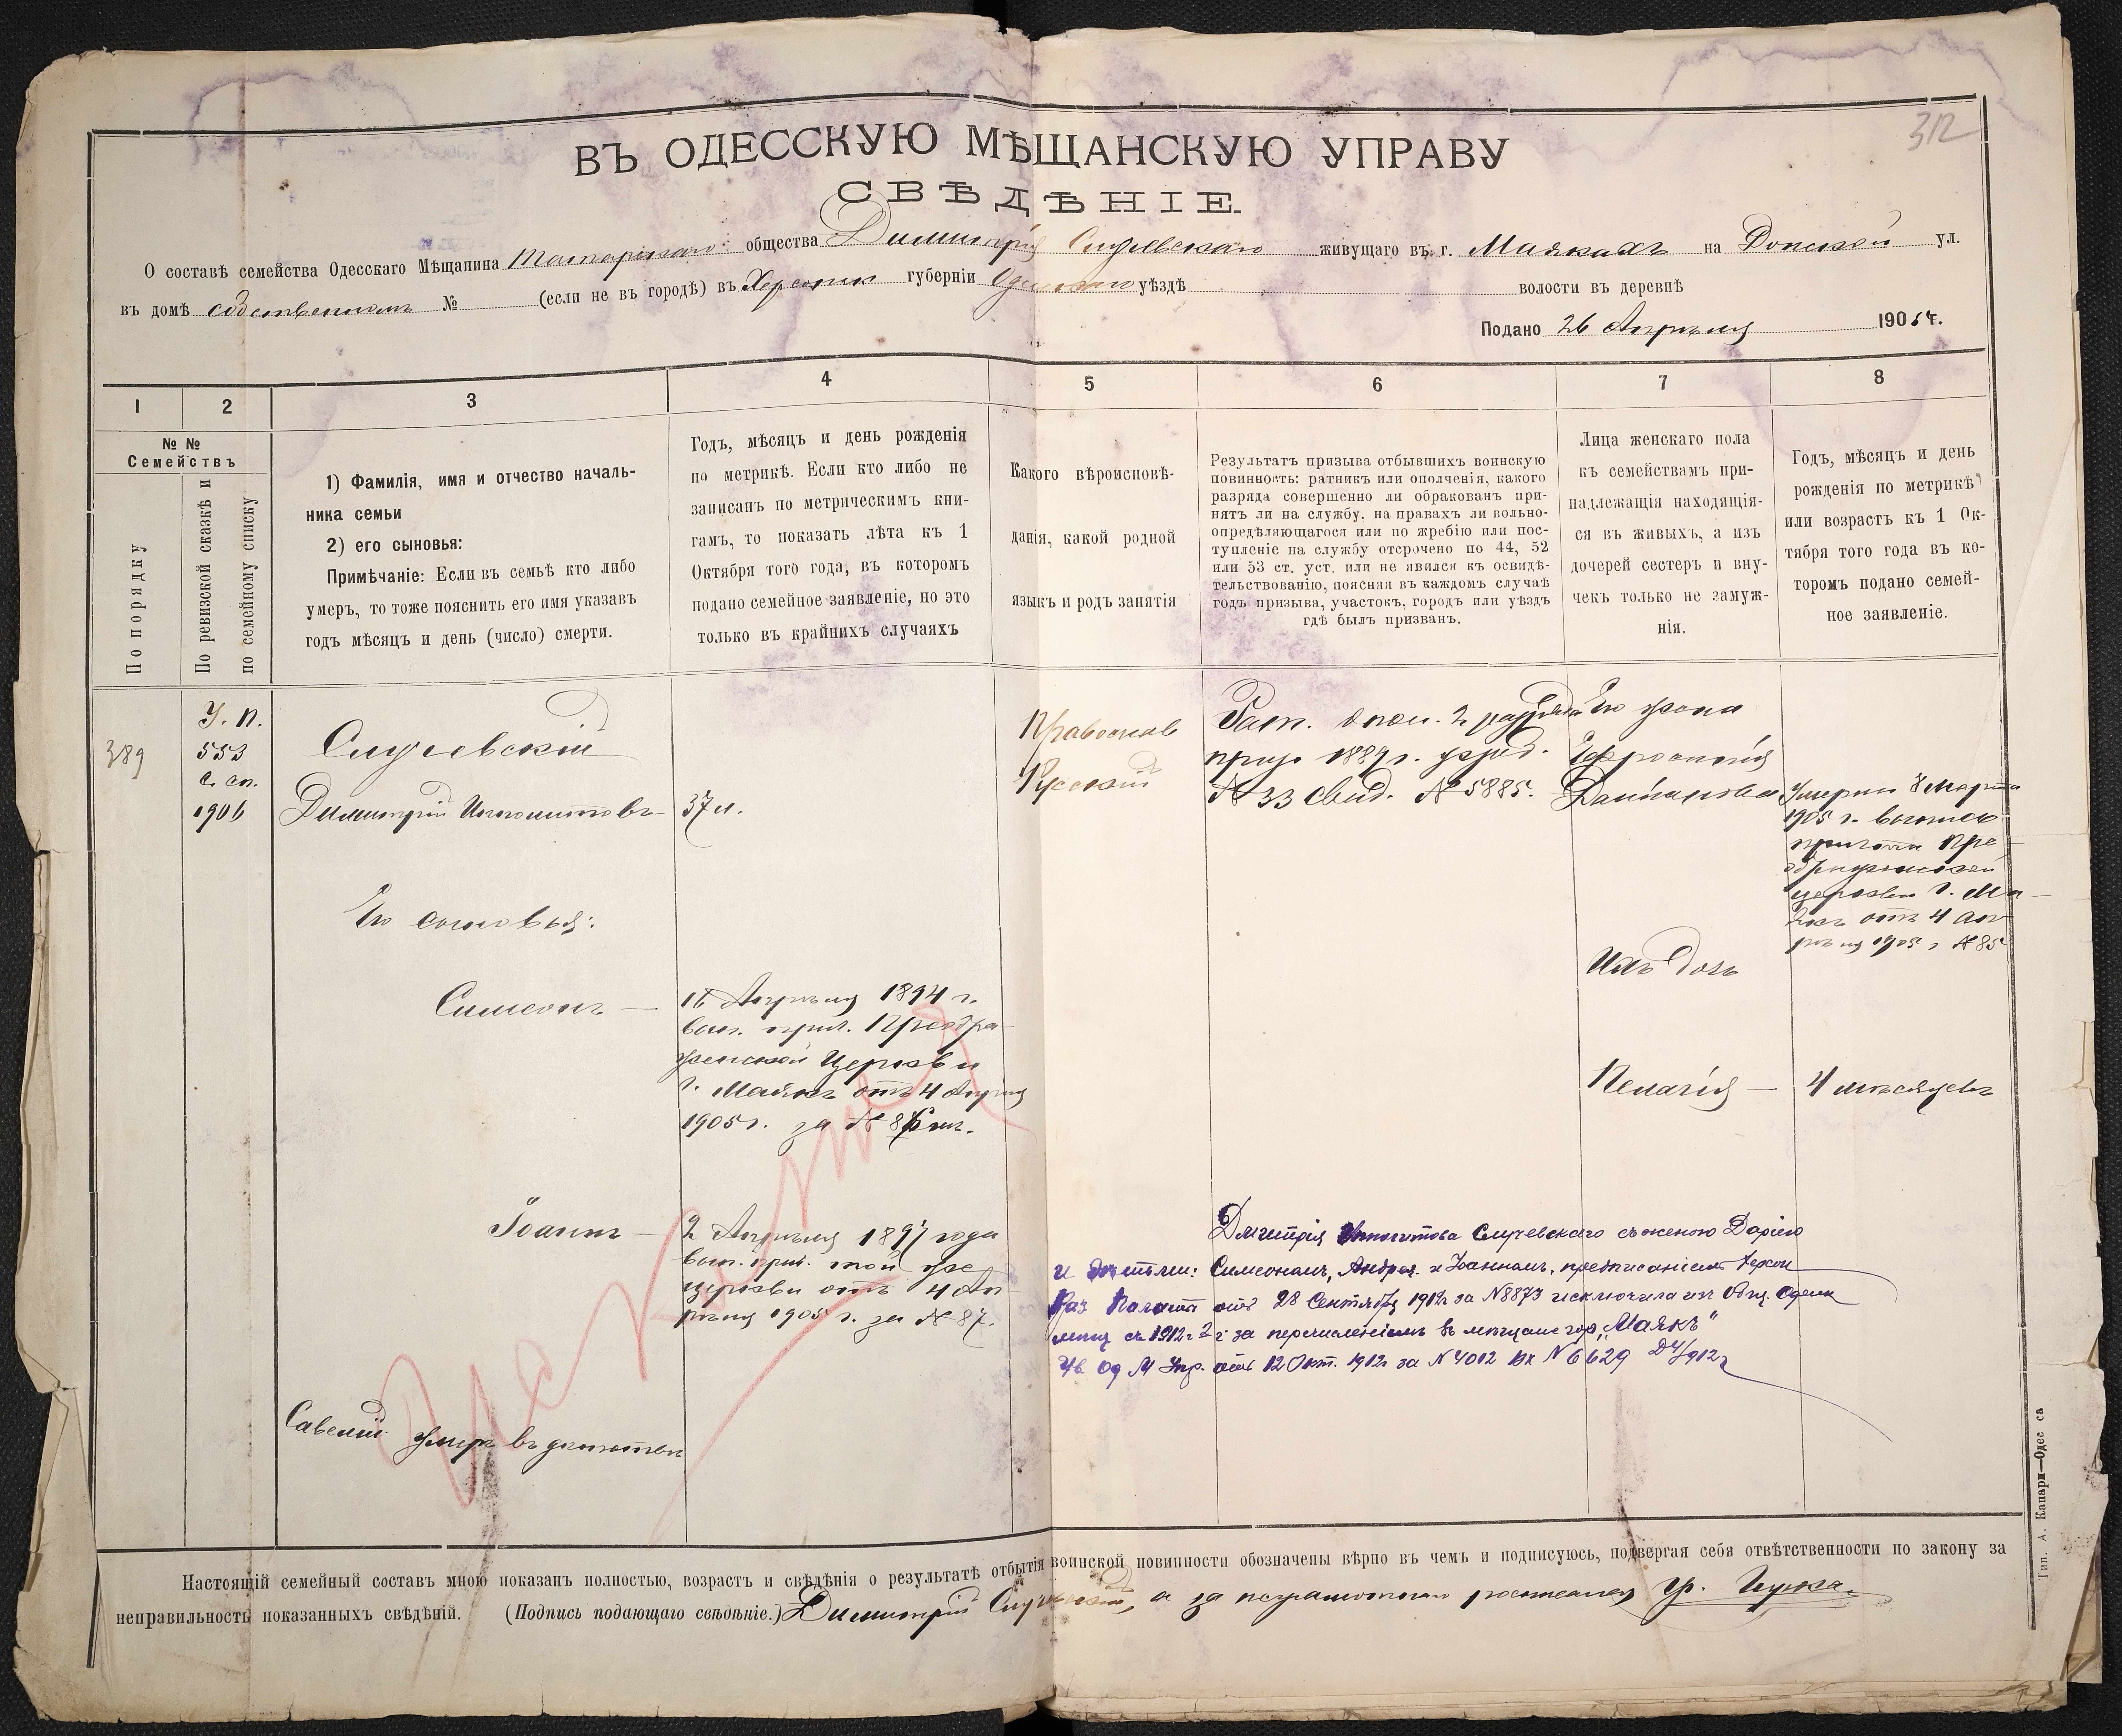 312
ВЪ ОДЕССКУЮ МѢЩАНСКУЮ УПРАВУ
СВѢДѢНІЕ.
О составѣ семейства Одесскаго Мѣщанина общества Димитрія Случевскаго живущаго въ г. Маякахъ на Донской ул.
въ домѣ собственномъ № (если не въ городѣ) въ Херсонск губерніи Одесскаго уѣздѣ волости въ деревнѣ
Подано 26 Апрѣля 1905 г.
1 2 3 4 5 6 7 8
№ № Семействъ
По порядку
По ревизской сказкѣ и
по семейному списку
1) Фамилія, имя и отчество началь-
ника семьи
2) его сыновья:
Примѣчаніе: Если въ семьѣ кто либо
умеръ, то тоже пояснить его имя указавъ
годъ мѣсяцъ и день (число) смерти.
Годъ, мѣсяцъ и день рожденія
по метрикѣ. Если кто либо не
записанъ по метрическимъ кни-
гамъ, то показать лѣта къ 1
Октября того года, въ которомъ
подано семейное заявленіе, но это
только въ крайнихъ случаяхъ
Какого вѣроисповѣ-
данія, какой родной
языкъ и родъ занятія
Результатъ призыва отбывшихъ воинскую
повинность: ратникъ или ополченія, какого
разряда совершенно ли обракованъ при-
нятъ ли на службу, на правахъ ли вольно-
опредѣляющагося или по жребію или пос-
тупленіе на службу отсрочено по 44, 52
или 53 ст. уст. или не явился къ освидѣ-
тельствованію, поясняя въ каждомъ случаѣ
годъ призыва, участокъ, городъ или уѣздъ
гдѣ былъ призванъ.
Лица женскаго пола
къ семействамъ при-
надлежащія находящія-
ся въ живыхъ, а изъ
дочерей сестеръ и вну-
чекъ только не замуж-
нія.
Годъ, мѣсяцъ и день
рожденія по метрикѣ
или возрастъ къ 1 Ок-
тября того года въ ко-
торомъ подано семей-
ное заявленіе.
389
У. П.
553
С. сп.
1906
Случевскій
Димитрій Ипполитовъ
37 л.
Православ
Русскій
Рат. опол. 2 разряда
приз. 1889 г.
№ 33 свид. № 5885.
Его жена
Ефросинія
Умерла 8 Марта
1905 г. выпись
причта Пре
ображенской
церкви г. Ма
якъ отъ 4 Ап
рѣля 1905 г № 85
Его сыновья:
Симеонъ
16 Апрѣля 1894 г.
вып. прич. Преобра
женской Церкви
г. Маякъ отъ 4 Апрѣля
1905 г. за №
Ихъ дочь
Пелагія — 4 мѣсяцевъ
Іоаннъ
2 Апрѣля 1897 года
вып. прич. той же
церкви отъ 4 Ап
рѣля 1905 г. за № 87.
Дмитрія Ипполитова Случевскаго съ женою Дарією
и дѣтьми: Симеономъ, Андрея и Іоанномъ, предписаніемъ Херсон
Каз Палата отъ 28 Сентября 1912г за №8873 исключила изъ Общ. Одесск
мѣщ съ 1912 г 2 за перечисленіемъ въ мѣщане гор. „Маякъ"
Ув Од М Упр. отъ 12 Окт. 1912г за № 4012 Вх № 6629
Савелій умеръ въ дѣтствѣ
Настоящій семейный составъ мною показанъ полностью, возрастъ и свѣдѣнія о результатѣ отбытія воинской повинности обозначены вѣрно въ чемъ и подписуюсь, подвергая себя отвѣтственности по закону за
неправильность показанныхъ свѣдѣній. (Подпись подающаго свѣдѣніе.) Димитрій Случевскій, а за неграмотнаго росписался
Тип. А. Капари—Одесса